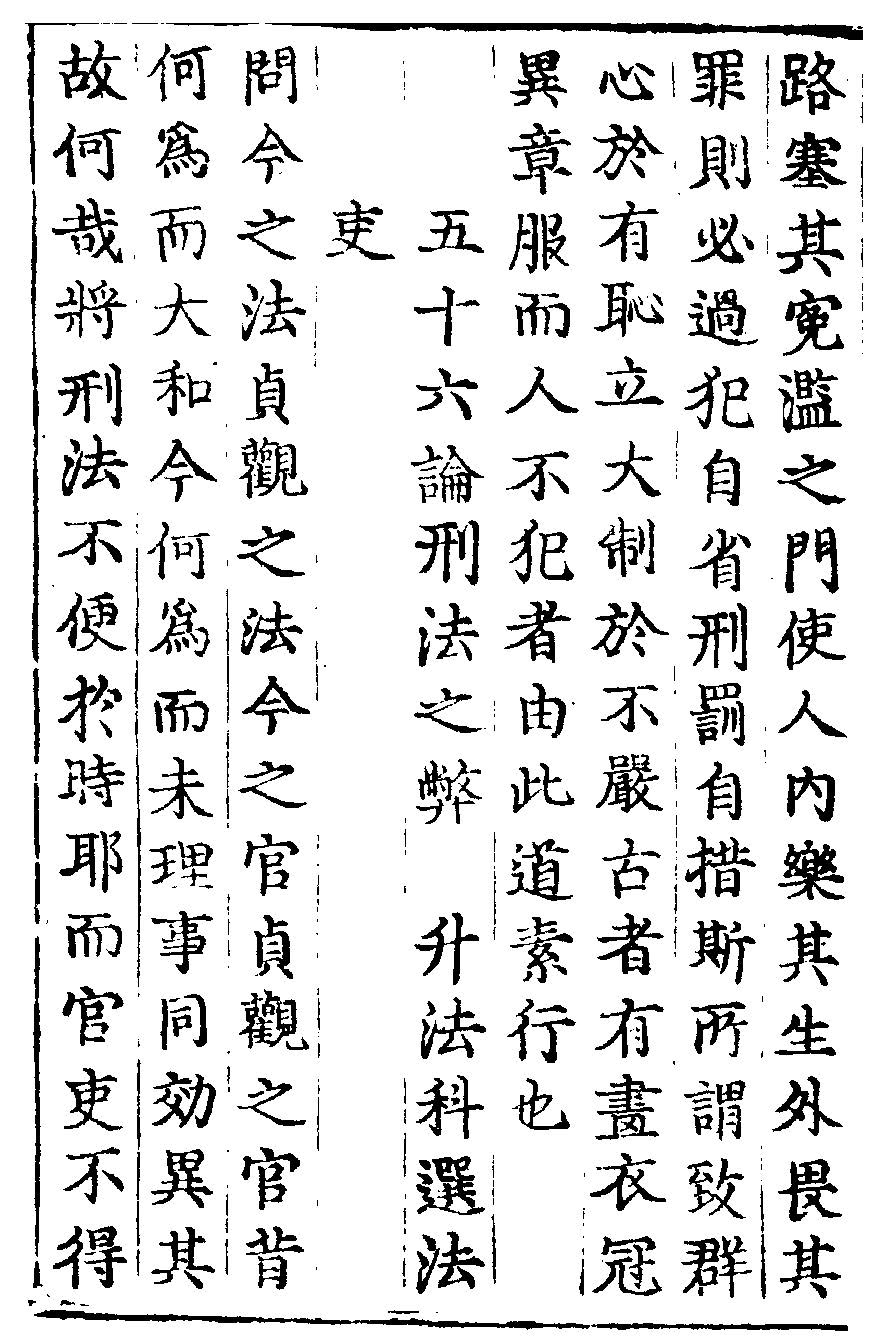 路塞其寃濫之門使人內樂其生外畏其
罪則必過犯自省刑罰自措斯所謂致群
心於有恥立大制於不嚴古者有畫衣冠
異章服而人不犯者由此道素行也
五十六論刑法之弊 升法科選法
吏
問今之法貞觀之法今之官貞觀之官昔
何爲而大和今何爲而未理事同効異其
故何哉將刑法不便於時耶而官吏不得